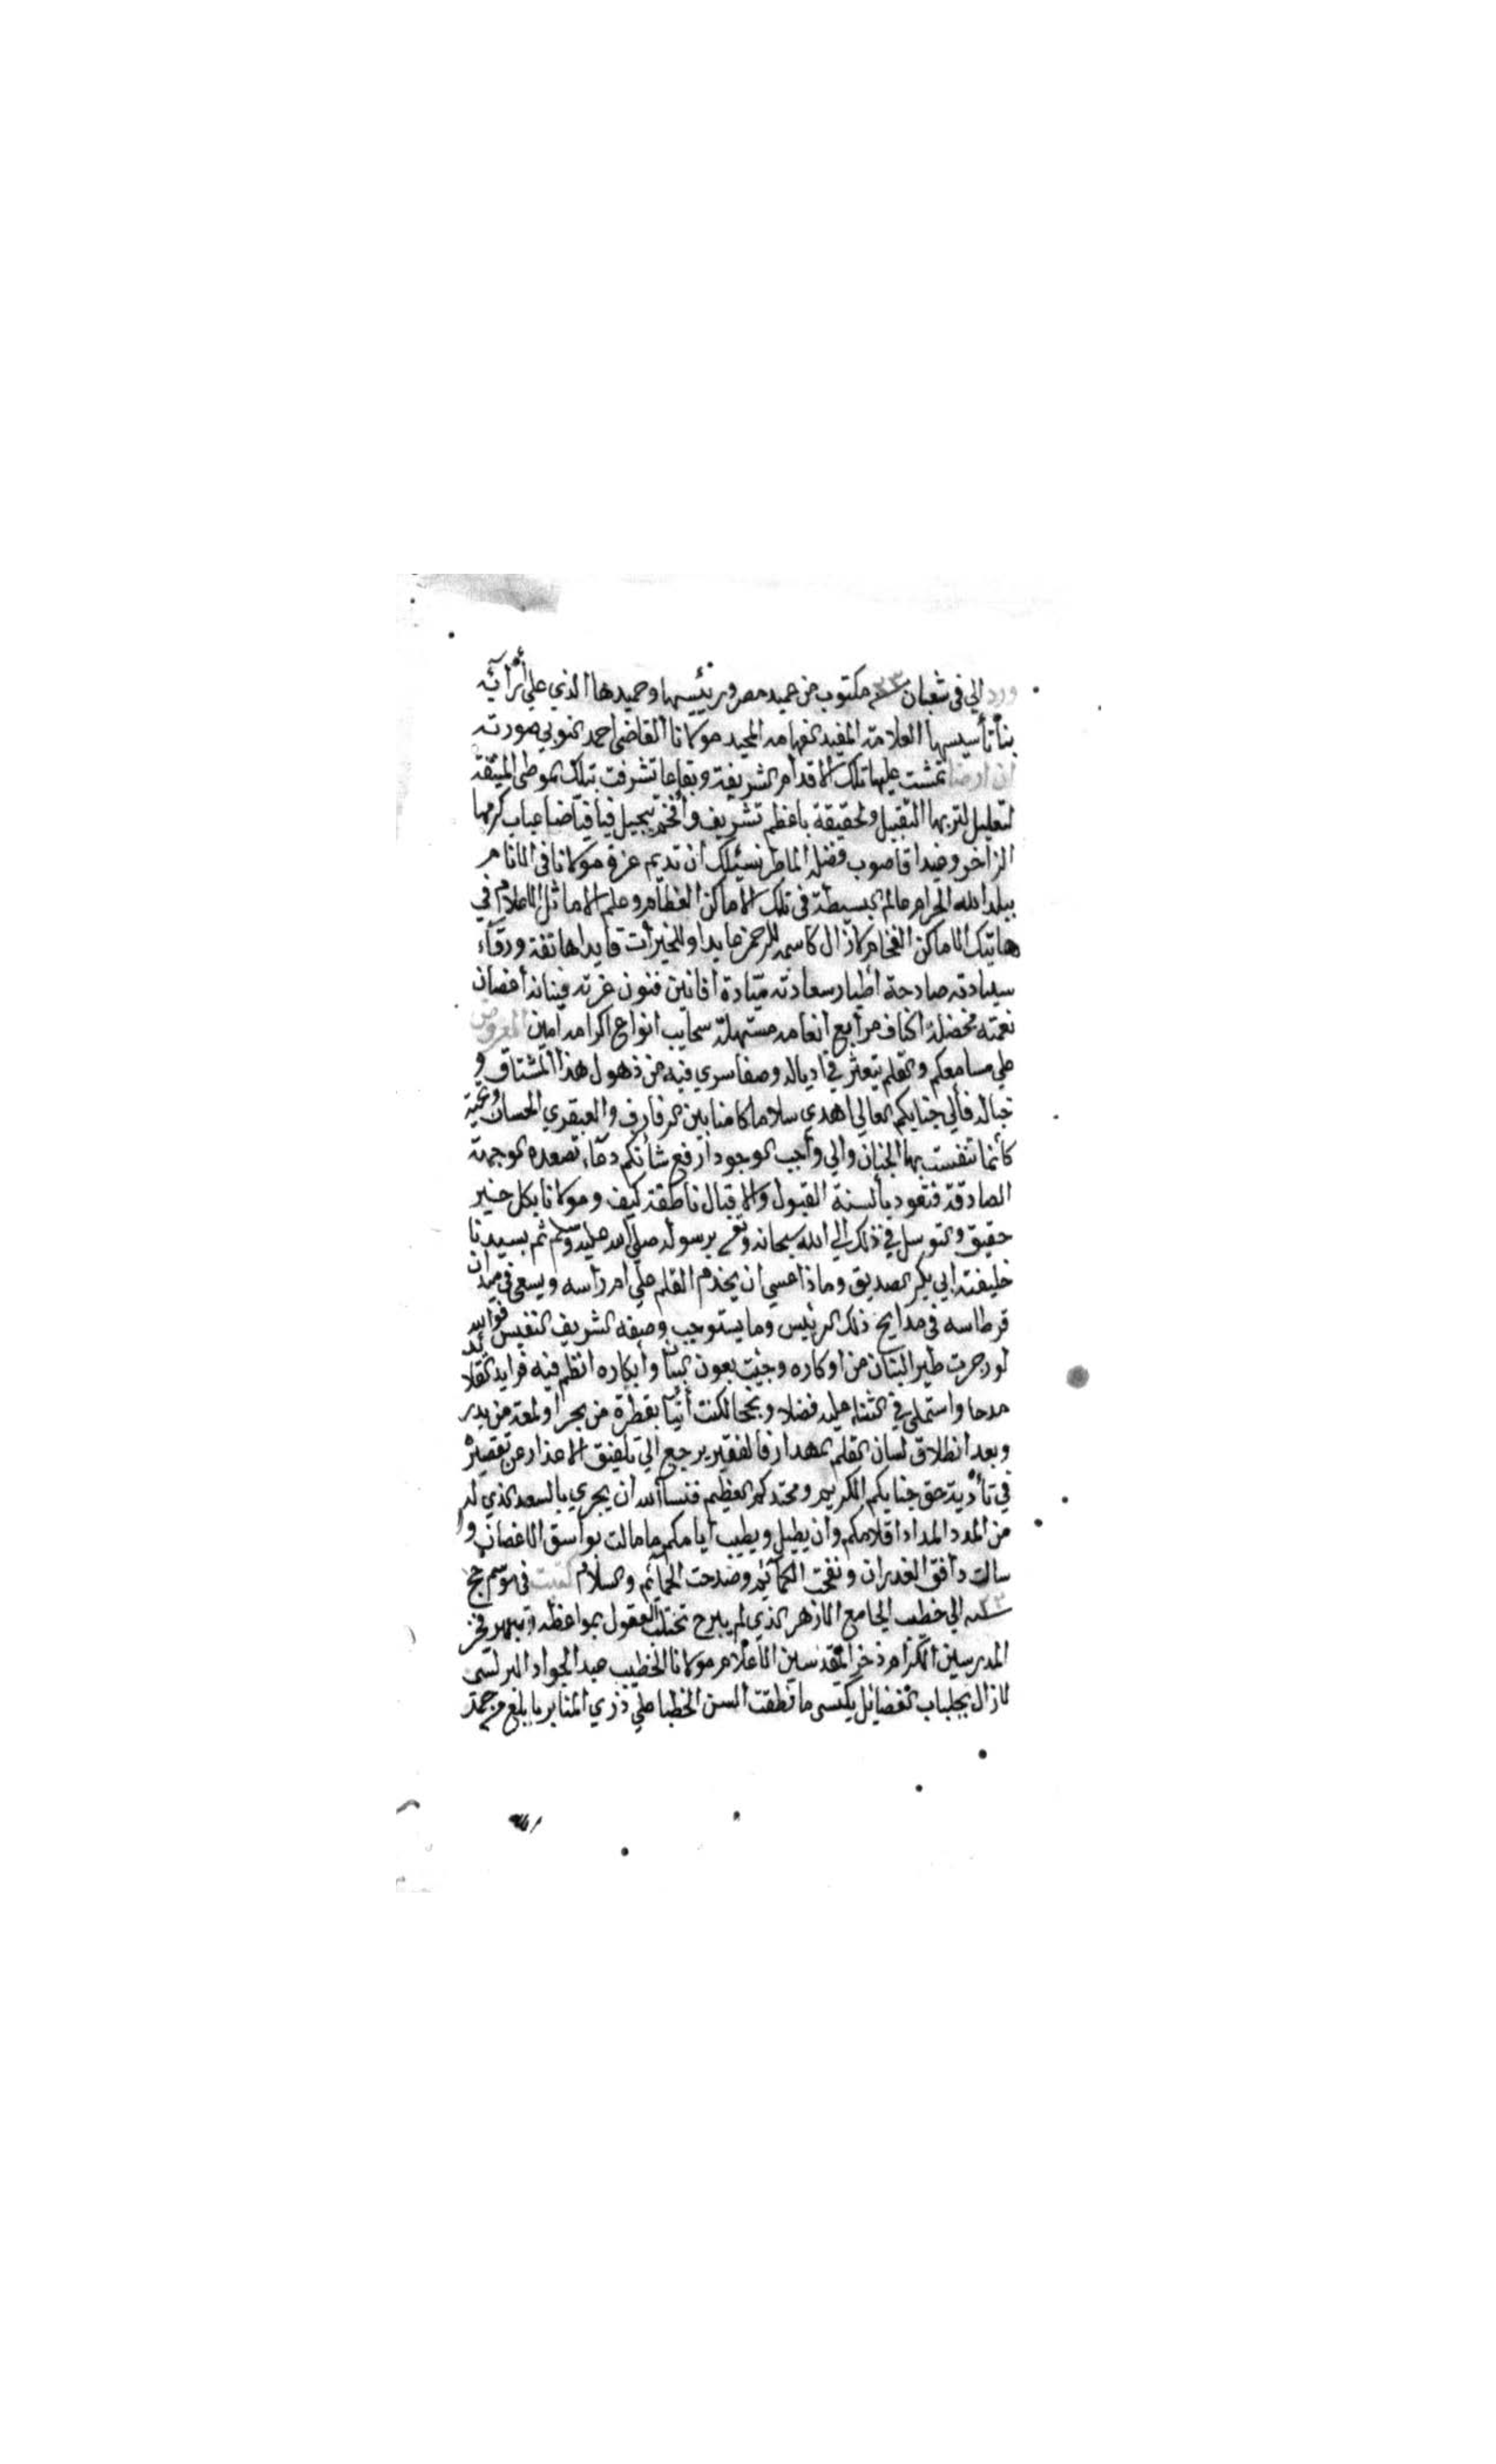 ورد الي في شعبان سنة ٣٣ مكتوب من عميد مصر ورئيسها وحميدها الذي علي أثر آيَه
بنا تأسيسها العلامة المفيد الفهامه المجيد مولانا القاضي احمد النوبي صورته
ان ارضا تمشت عليها تلك الاقدام الشريفة وبقاعا تشرفت بتلك الموطي المنيفة
لتعليل لتربها التقبيل ولحقيقة باعظم تشريف وأفخم تبجيل فيا فيّاضا عباب كرمها
الزاخر وغيداقا صوب فضله الماطر نسئلك ان تديم عزة مولانا في الانام
ببلد الله الحرام عالم البسيطة في تلك الاماكن العظام وعلم الاماثل الاعلام في
هاتيك الاماكن الفخام لازال كاسمه للرحمن عابدا وللخيرأت قايدا هاتفة ورقآء
سيادته صادحة أطيار سعادته ميّادة أفانين فنون عزته فينانة أغصان
نعمته مخضلة اكناف مرابع انعامه مستهلة سحايب انواع اكرامه آمين المعروض
علي مسامعكم والقلم يتعثر في اذياله وصفا سري فيه من ذهول هذا المشتاق و
خباله فألي جنابكم العالي اهدي سلاما كامنا بين الرفارف والعبقري الحسان وتحية
كأنما تنفست بها الجنان والي وأجب الوجود ارفع شأنكم دعآء تصعده الوجهة
الصادقة فتعود بألسنة القبول والاقبال ناطقة كيف ومولانا بكل خير
حقيق والتوسل في ذلك الي الله سبحانه وتعالي برسوله صلي الله عليه وسلم ثم بسيدنا
خليفته ابي بكر الصديق وماذا عسي ان يخدم القلم علي ام رأسه ويسعي في ميدان
قرطاسه في مدايح ذلك الرئيس وما يستوجب وصفه الشريف النفيس فوالله
لو زجرت طير البنان من اوكاره وجئت بعون البيان وأبكاره انظم فيه فرايد القلائد
مدحا واستملي في الثناء عليه فضلا ونجحا لكنت أتيًا بقطرة من بحر أو لمعة من بدر
وبعد انطلاق لسان القلم المهدار فالفقير يرجع الي تلفيق الاعذار عن تقصيره
في تأدية حق جنابكم الكريم ومحتدكم العظيم فنسأ الله ان يجري بالسعد الذي له
من المدد المداد اقلامكم وان يطيل ويطيب ايامكم ما مالت بواسق الاغصان و
سالت دافق الغدران ونفحت الكمآئم وصدحت الحمآئم والسلام كتبت في موسم حج
سنة ٣٣ الي خطيب الجامع الازهر الذي لم يبرح تختلب العقول بمواعظه وتبهر فخر
المدرسين الكرام ذخر المقدسين الاعلام مولانا الخطيب عبد الجواد البرلسي
لازال بجلباب الفضايل يكتسي ما نطقت السن الخطبا علي ذري المنابر بابلغ